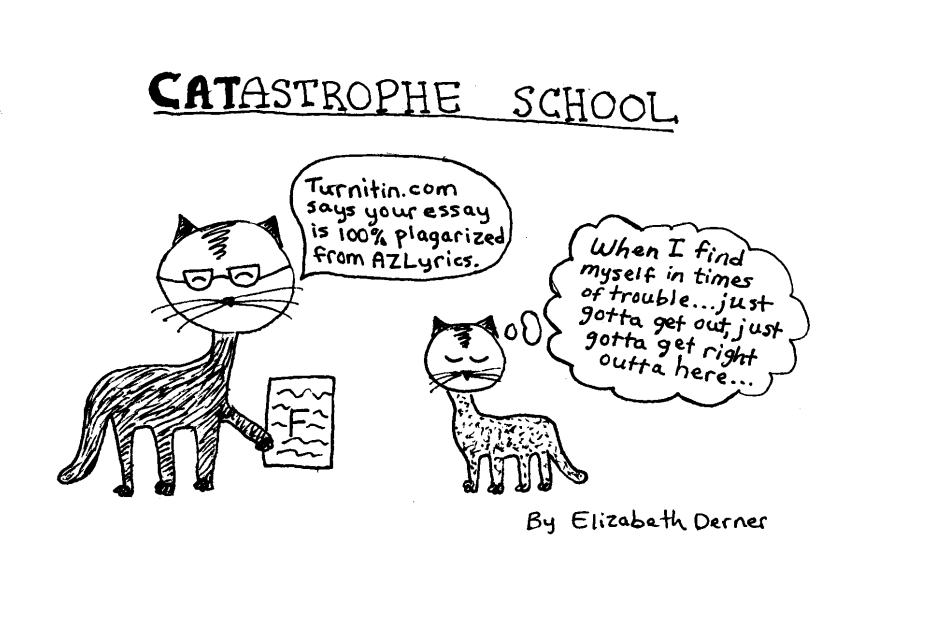 CATASTROPHE SCHOOL
Turnitin.com
says your essay
is 100% plagarized
from AZLyrics.
When I find
myself in times
of trouble...just
gotta get out, just
gotta get right
outta here...
F
By Elizabeth Derner